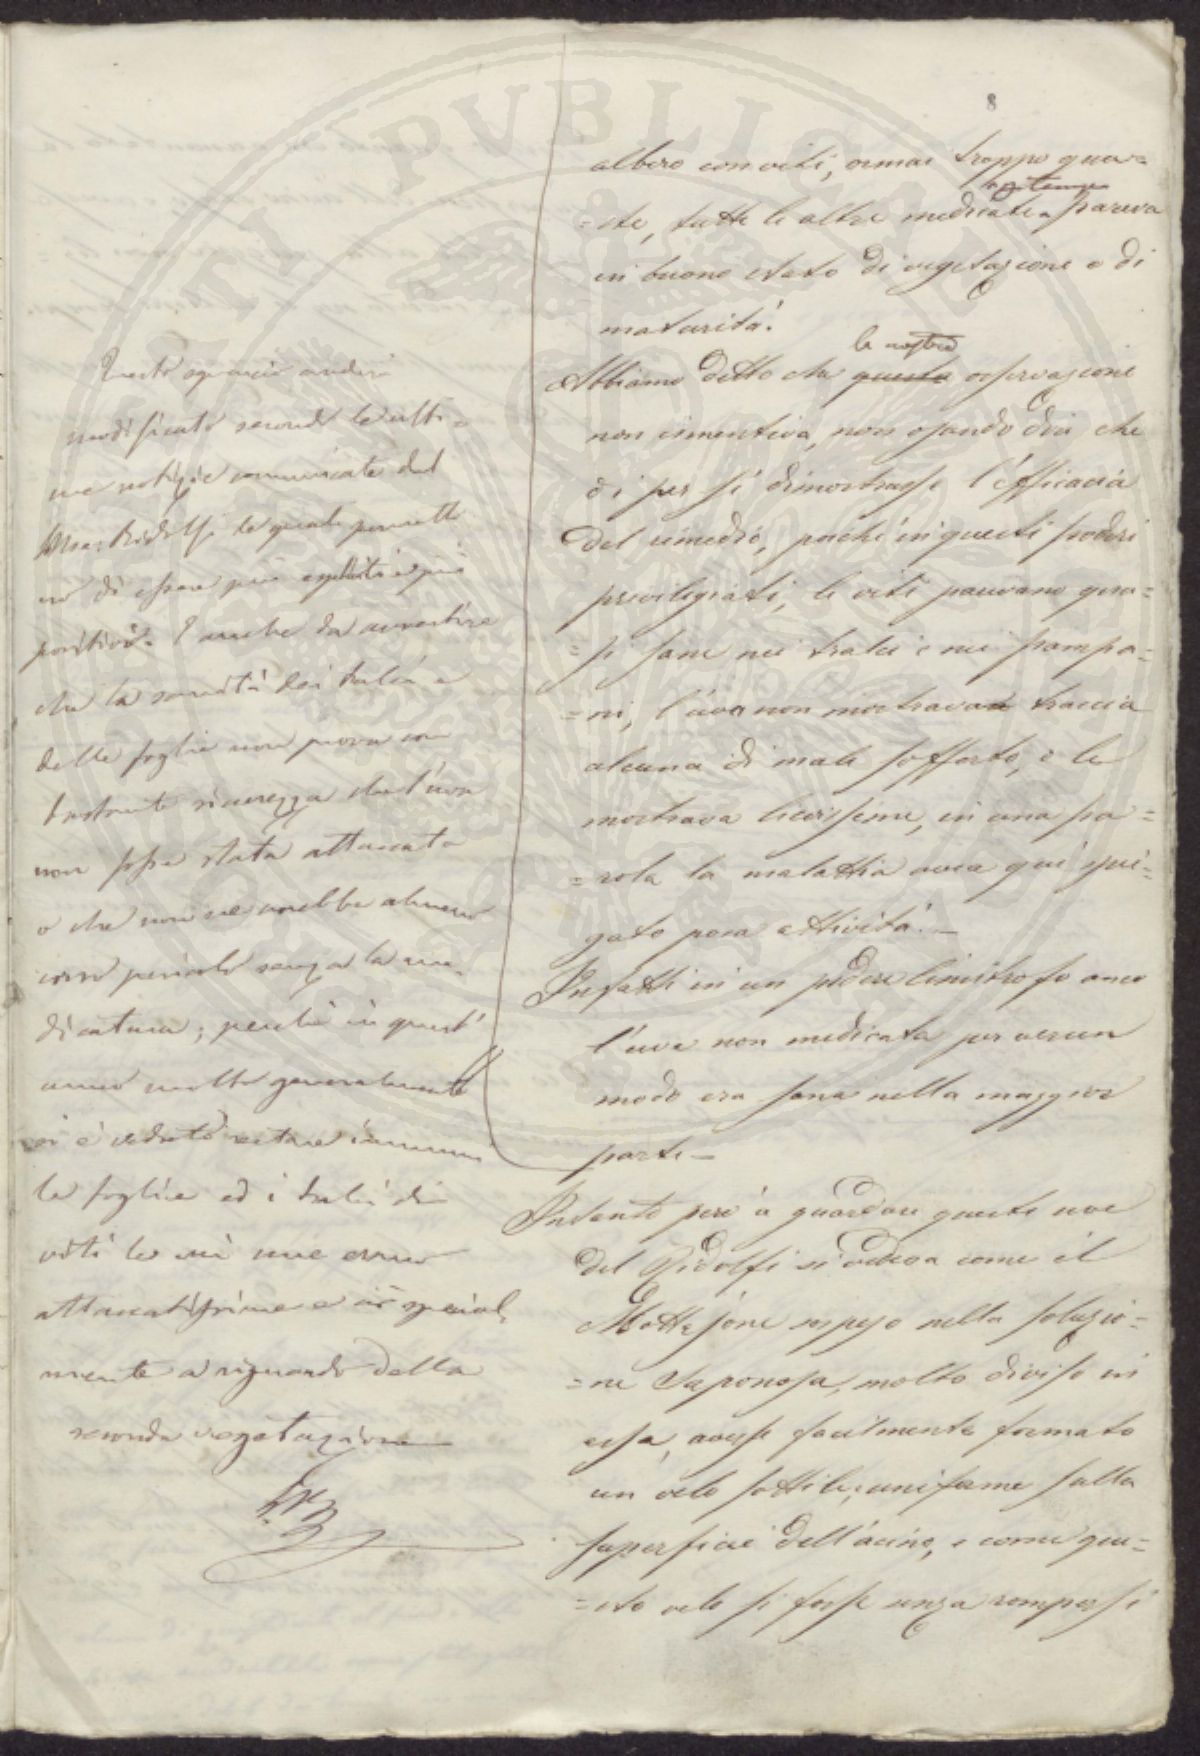 8
albero con viti, ormai troppo gua=
=ste, tutte le altre medicate a tempo pareva
in buono stato di vegetazione e di
maturità.
Abbiamo detto che questa la nostra osservazione
non cimentiva, non osando dir che
di per sé dimostrasse l'efficacia
del rimedio, poiché in questi poderi
privilegiati, le viti parevano qua=
=si sane nei tralci e nei pampa=
=ni, l'uva non mostrava traccia
alcuna di male sofferto, o le
mostrava lievissime, in una pa=
=rola la malattia avea qui spie=
gato poca attività. —
Infatti in un podere limitrofo anco
l'uva non medicata per verun
modo era sana nella maggior
parte —
Intanto però a guardare queste uve
del Ridolfi si vedeva come il
Mottajone sospeso nella soluzio=
=ne saponosa, molto diviso in
essa, avesse facilmente formato
un velo sottile, uniforme sulla
superficie dell'acino, e come que=
=sto velo si fosse senza rompersi
Questo squarcio anderà
modificato secondo le ulti=
me notizie comunicate dal
Mse: Ridolfi le quali permette
no di essere più espliciti e più
positivi. È anche da avvertire
che la sanità dei tralci e
delle foglie non prova con
bastante sicurezza che l'uva
non fosse stata attaccata
o che non ne avrebbe almeno
corso pericolo senza la me=
dicatura; perché in quest'
anno molto generalmente
si è veduto restare immuni
le foglie ed i tralci di
viti le cui uve erano
attaccatissime e ciò special=
mente a riguardo della
seconda vegetazione